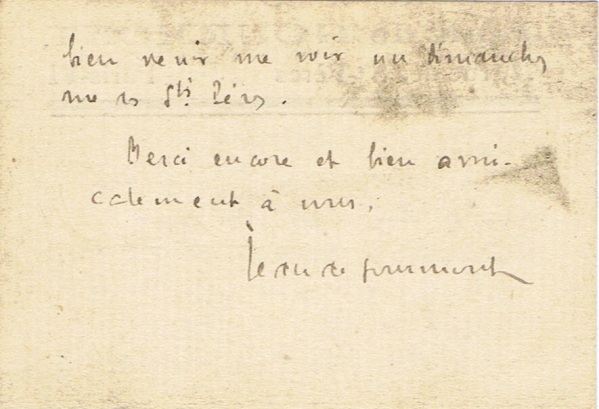 bien venir me voir un dimanche,
rue des Sts Pères.
Merci encore et bien ami-
calement à vous,
Jean de Gourmont